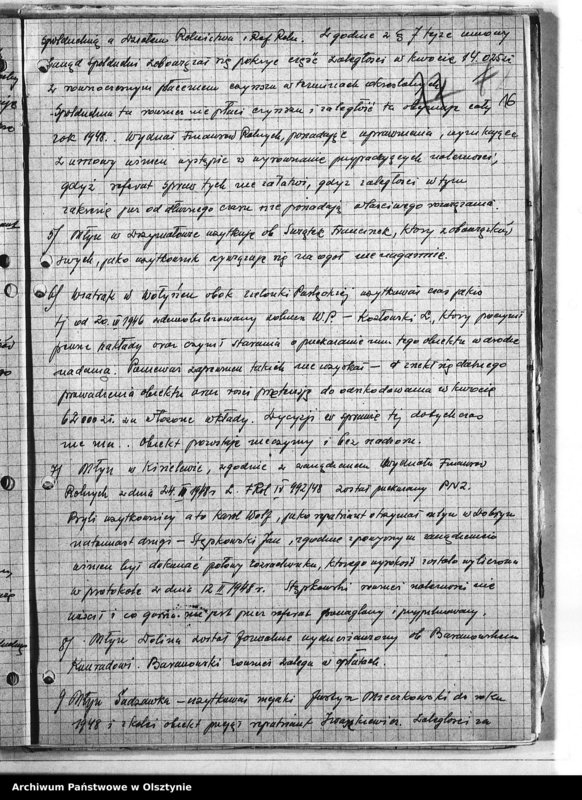 Spółdzielnią a Działem Rolnictwa i Ref Roln. Zgodnie z § 7 tejże umowy
Zarząd Spółdzielni zobowiązał się pokryć część zaległości w kwocie 14.025 zł
z równoczesnym płaceniem czynszu w terminach określonych
16
Spółdzielnia ta również nie płaci czynszu i zaległość ta obejmuje cały
rok 1948. Wydział Finansów Rolnych, posiadając uprawnienia, wynikające
z umowy winien wystąpić o wyrównanie przypadających należności,
gdyż referat spraw tych nie załatwi, gdyż zaległości w tym
zakresie już od dłuższego czasu nie posiadają właściwego rozwiązania.
5/ Młyn w użytkuje ob Świątek Franciszek, który z obowiązków
swych, jako użytkownik wywiązuje się na ogół nienagannie.
6/ Wiatrak w obok Zielonki Pasłęckiej użytkował czas jakiś
tj od 1946 zdemobilizowany żołnierz W.P. – Kozłowski L, który poczynił
pewne nakłady oraz czynił starania o przekazanie mu tego obiektu w drodze
nadania. Ponieważ zapewnień takich nie uzyskał – zrzekł się dalszego
prowadzenia obiektu oraz rości pretensję do odszkodowania w kwocie
62 000 zł. za włożone wkłady. Decyzji w sprawie tej dotychczas
nie ma. Obiekt pozostaje nieczynny i bez nadzoru.
7/ Młyn w, zgodnie z zarządzeniem Wydziału Finansów
Rolnych z dnia 24 III 1948 r L. IV 442/48 został przekazany PNZ.
Byli użytkownicy a to Karol Wolf, jako repatriant otrzymał młyn w
natomiast drugi – Stępkowski Jan, zgodnie z powyższym zarządzeniem
winien był dokonać połowy, którego wysokość została wyliczona
w protokole z dnia 12 1948 r. Stępkowski również należności nie
uiścił i co gorsza nie jest przez referat ponaglany i przypilnowany.
8/ Młyn Dolina został formalnie wydzierżawiony ob Baranowskiemu
Konradowi. Baranowski również zalega w opłatach.
9/ Młyn Sadzawka – użytkował niejaki Justyn Mieczkowski do roku
1948 i z kolei obiekt przejął repatriant Iwaszkiewicz. Zaległości za
Archiwum Państwowe w Olsztynie